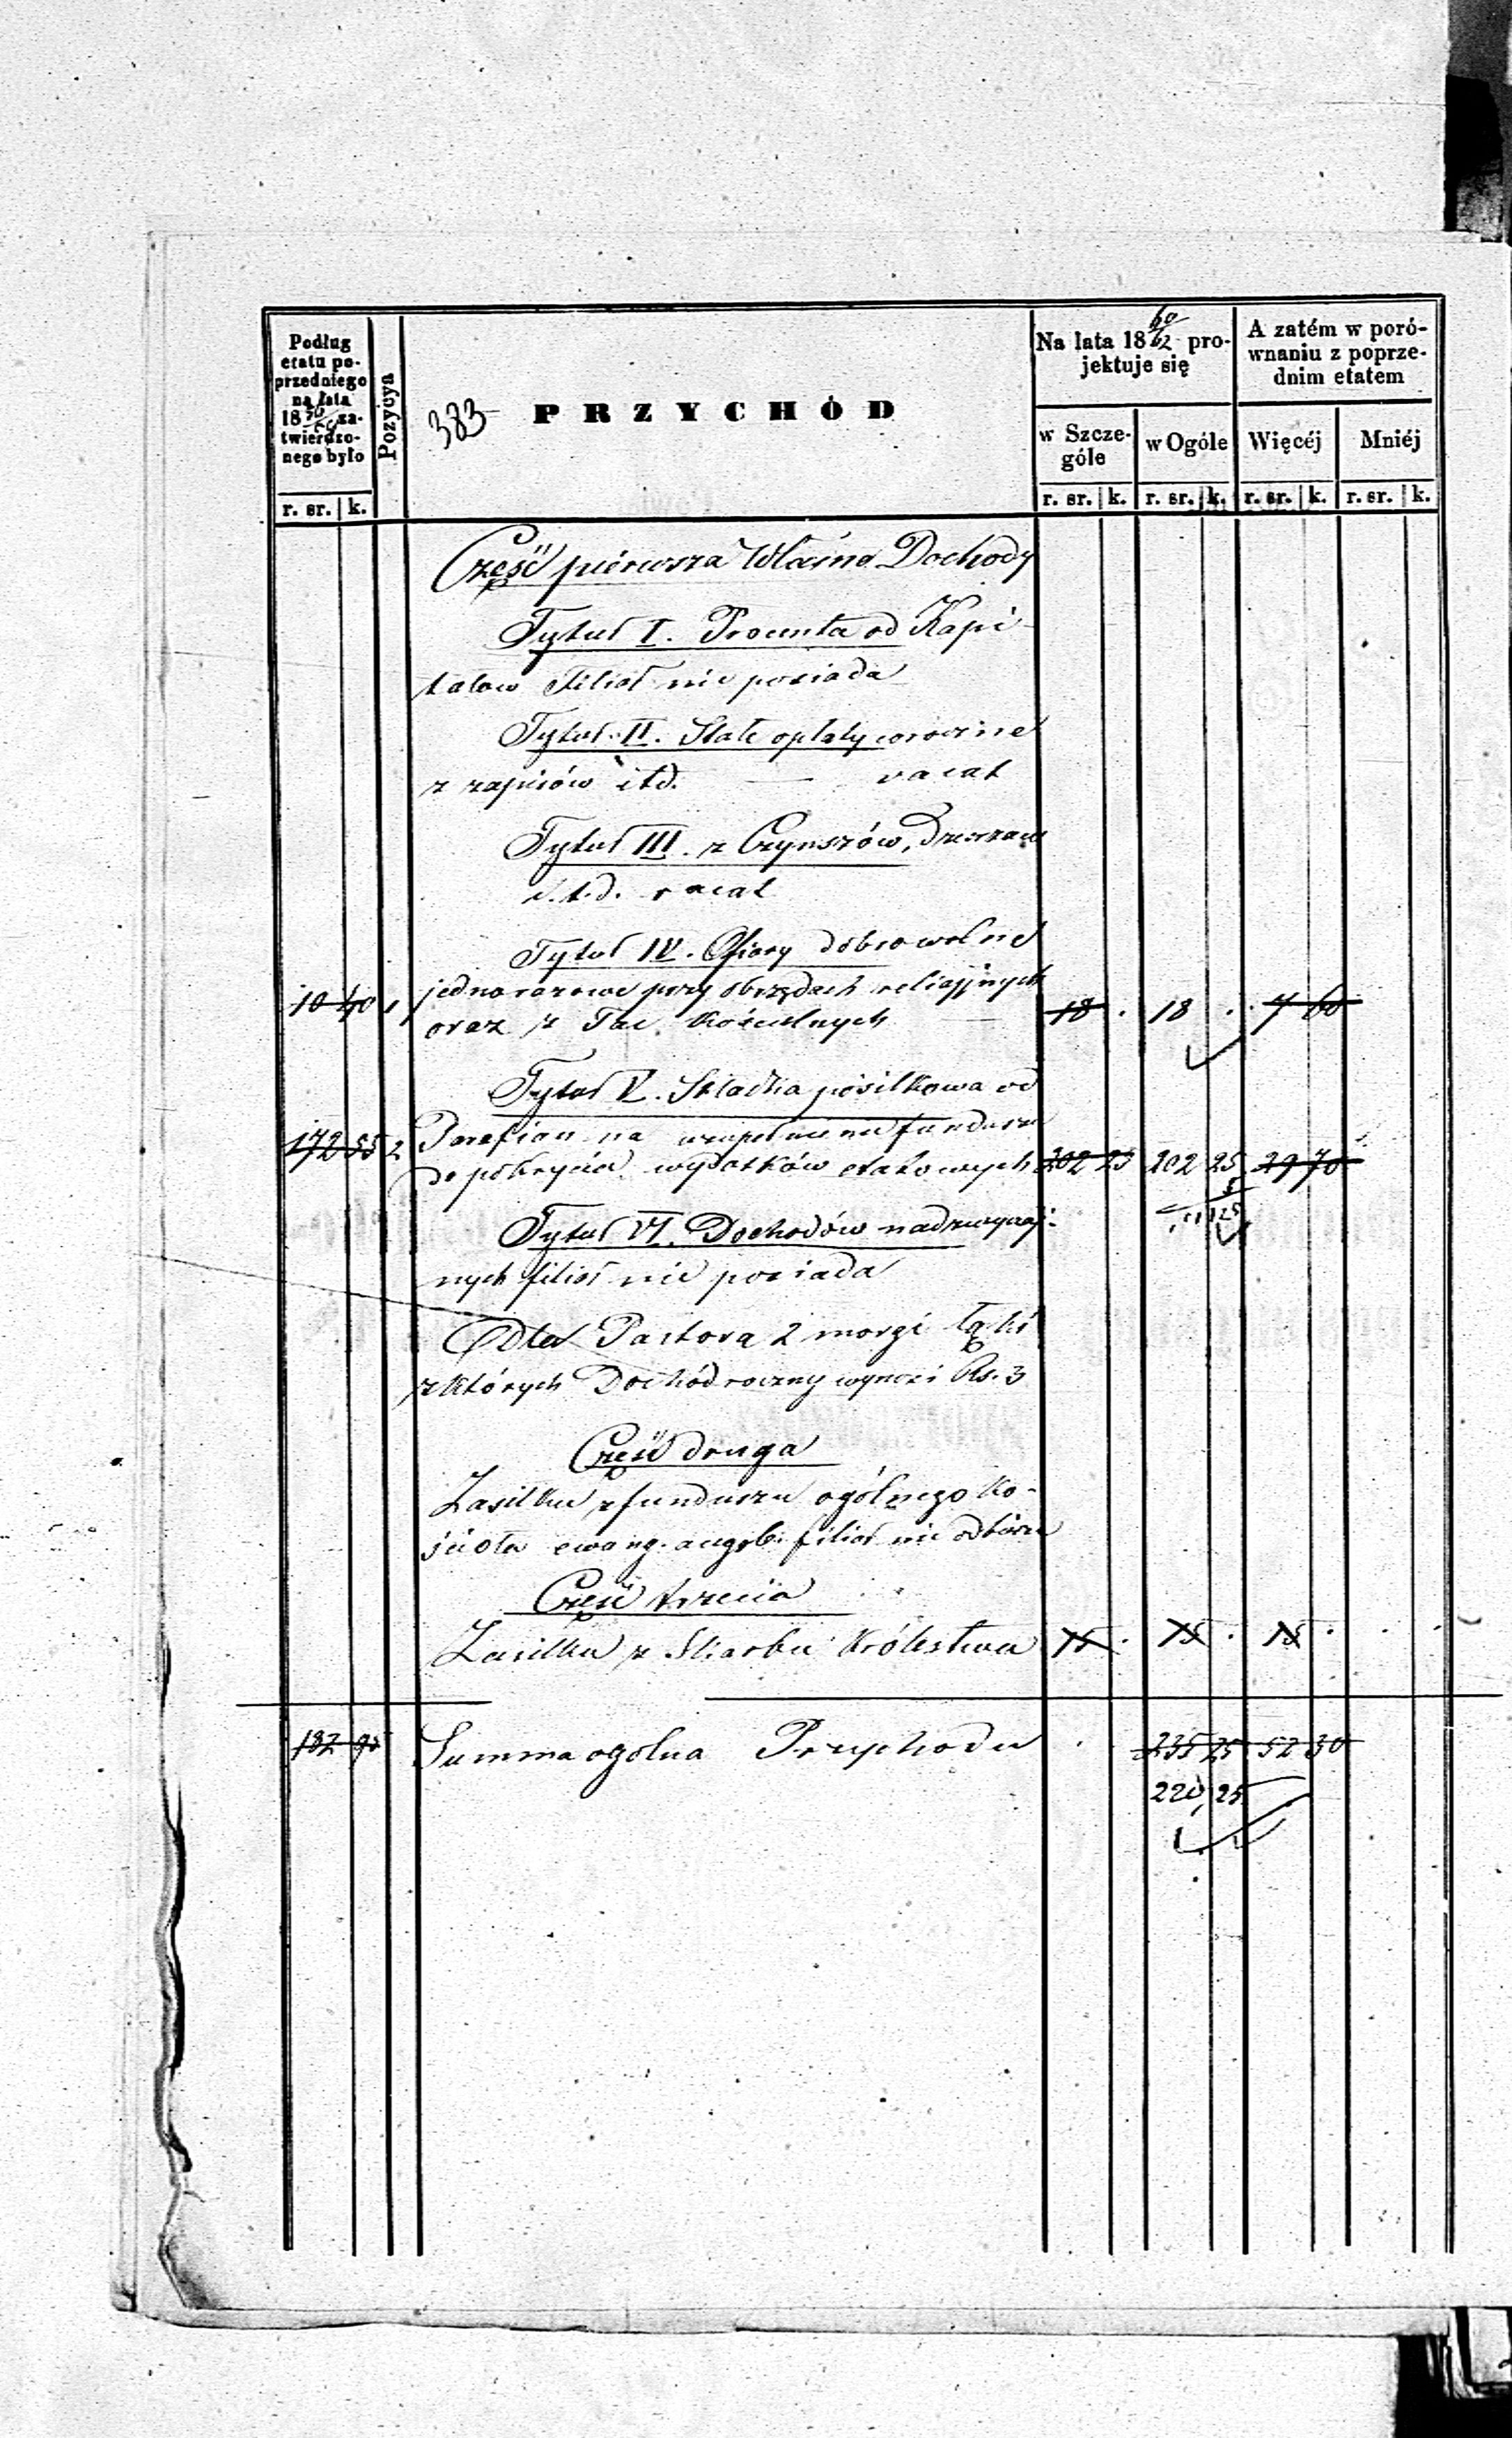 Podług
etatu po-
przedniego
na lata
18 za-
twierdzo-
nego było
Pozycya
383
PRZYCHÓD
Na lata 18 60/62 pro-
jektuje się
A zatém w poró-
wnaniu z poprze-
dnim etatem
w Szcze-
góle
w Ogóle
Więcéj
Mniéj
r. sr. k.
r. sr. k. r. sr. k. r. sr. k. r. sr. k.
Część pierwsza Własne Dochody
Tytuł I. Procenta od Kapi-
tałow Filiał nie posiada
Tytuł II. Stałe opłaty coroczne
z zapisów itd. — vacat
Tytuł III. z Czynszów, Dzerzaw
i.t.d. vacat
Tytuł IV. Ofiary dobrowolne
jednorazowe przy obrzędach religijnych
10 40 1 oraz z Tac Kościelnych 18 . 18 . 7 60
Tytuł V. Składka posiłkowa od
172 55 2 Parafian na uzupełnienie funduszu
do pokrycia wydatków etatowych 202 25 202 25 29 70
Tytuł VI. Dochodów nadzwyczaj-
nych filiał nie posiada
Dla Pastora 2 morgi łąki
z których Dochód roczny wynosi Rs. 3
Część druga
Zasiłku z funduszu ogólnego Ko-
ścioła ewang. augsb. filiał nie odbiera
Część trzecia
Zasiłku z Skarbu Królestwa 15 . 15 . 15 .
182 95 Summa ogolna Przychodu 235 25 52 30
220,25